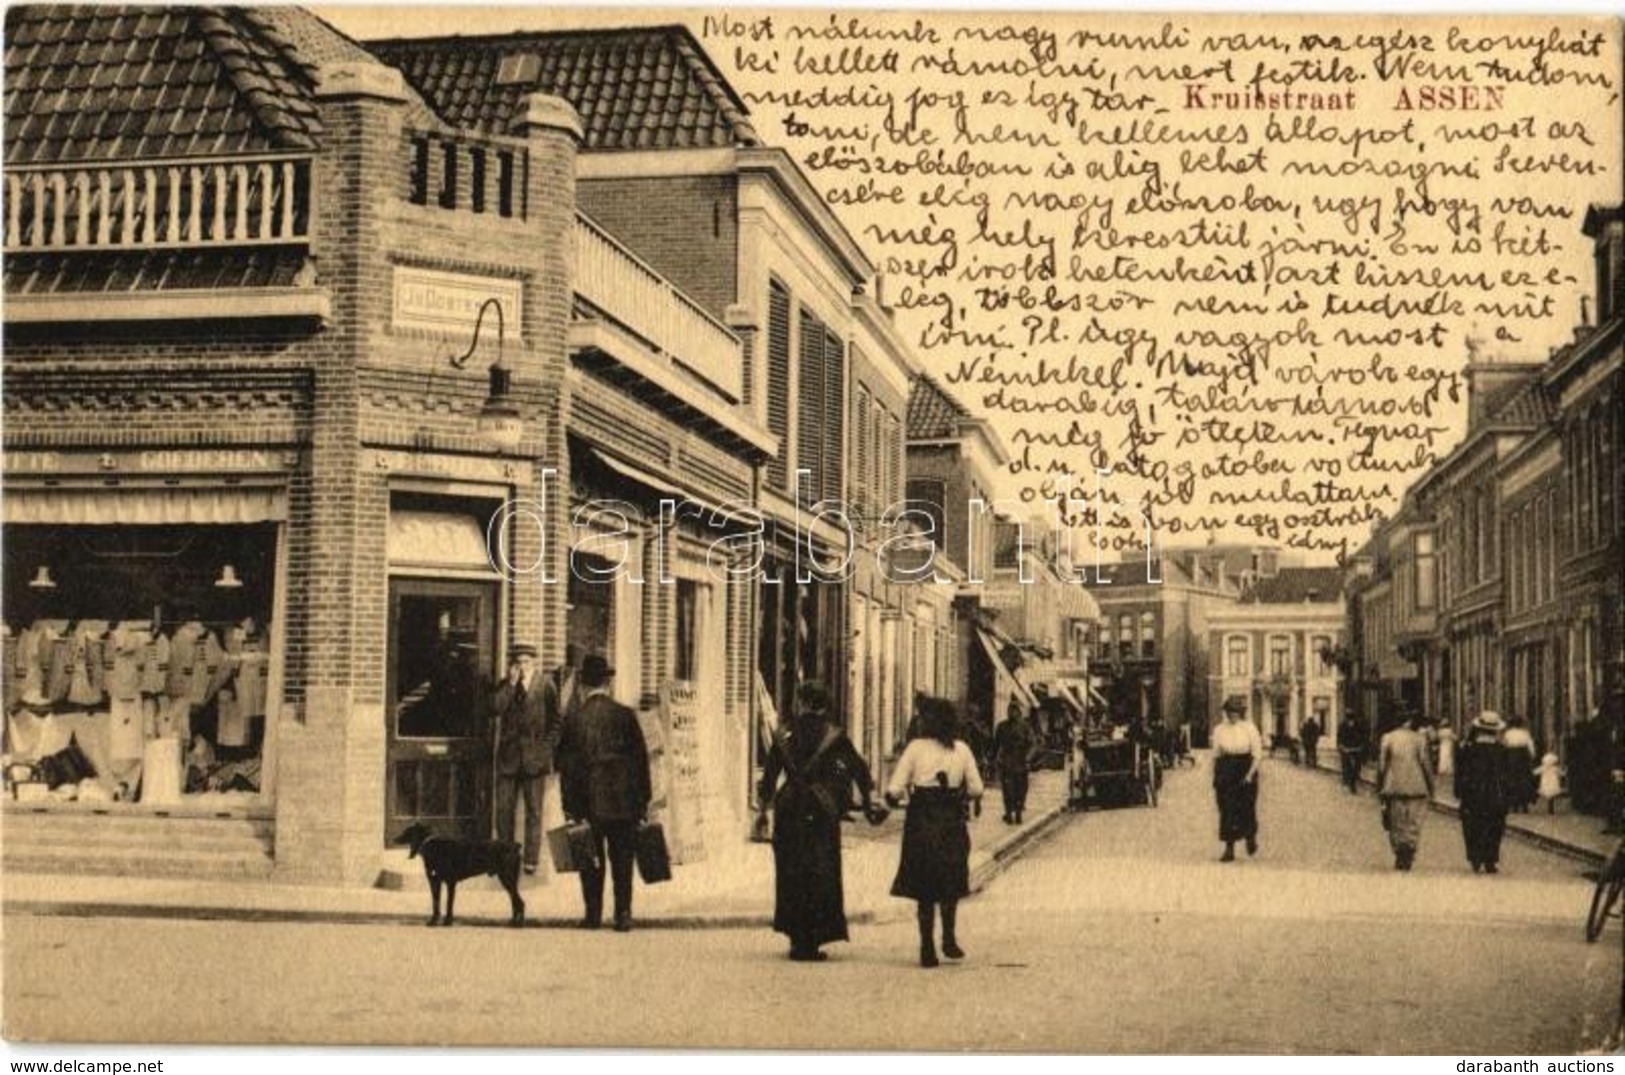 Most nálunk nagy rumli van, az egész konyhát
ki kellett rámolni, mert festik. Nem tudom,
meddig fog ez így tar-
Kruisstraat ASSEN
tani, de nem kellemes állapot, most az
előszobában is alig lehet mozogni. Szeren-
csére elég nagy előszoba, úgy hogy van
még hely keresztül járni. Én is két-
szer irok hetenként, azt hiszem ez e-
lég, többször nem is tudnék mit
írni. Pl. úgy vagyok most a
Nénikkel. Majd várok egy
darabig, talán támad
még jó ötletem. Tegnap
d. u. látogatóba voltunk
jól mulattam.
Ott is van egy osztrák
GOEDEREN
darabanth
darabanth auctions